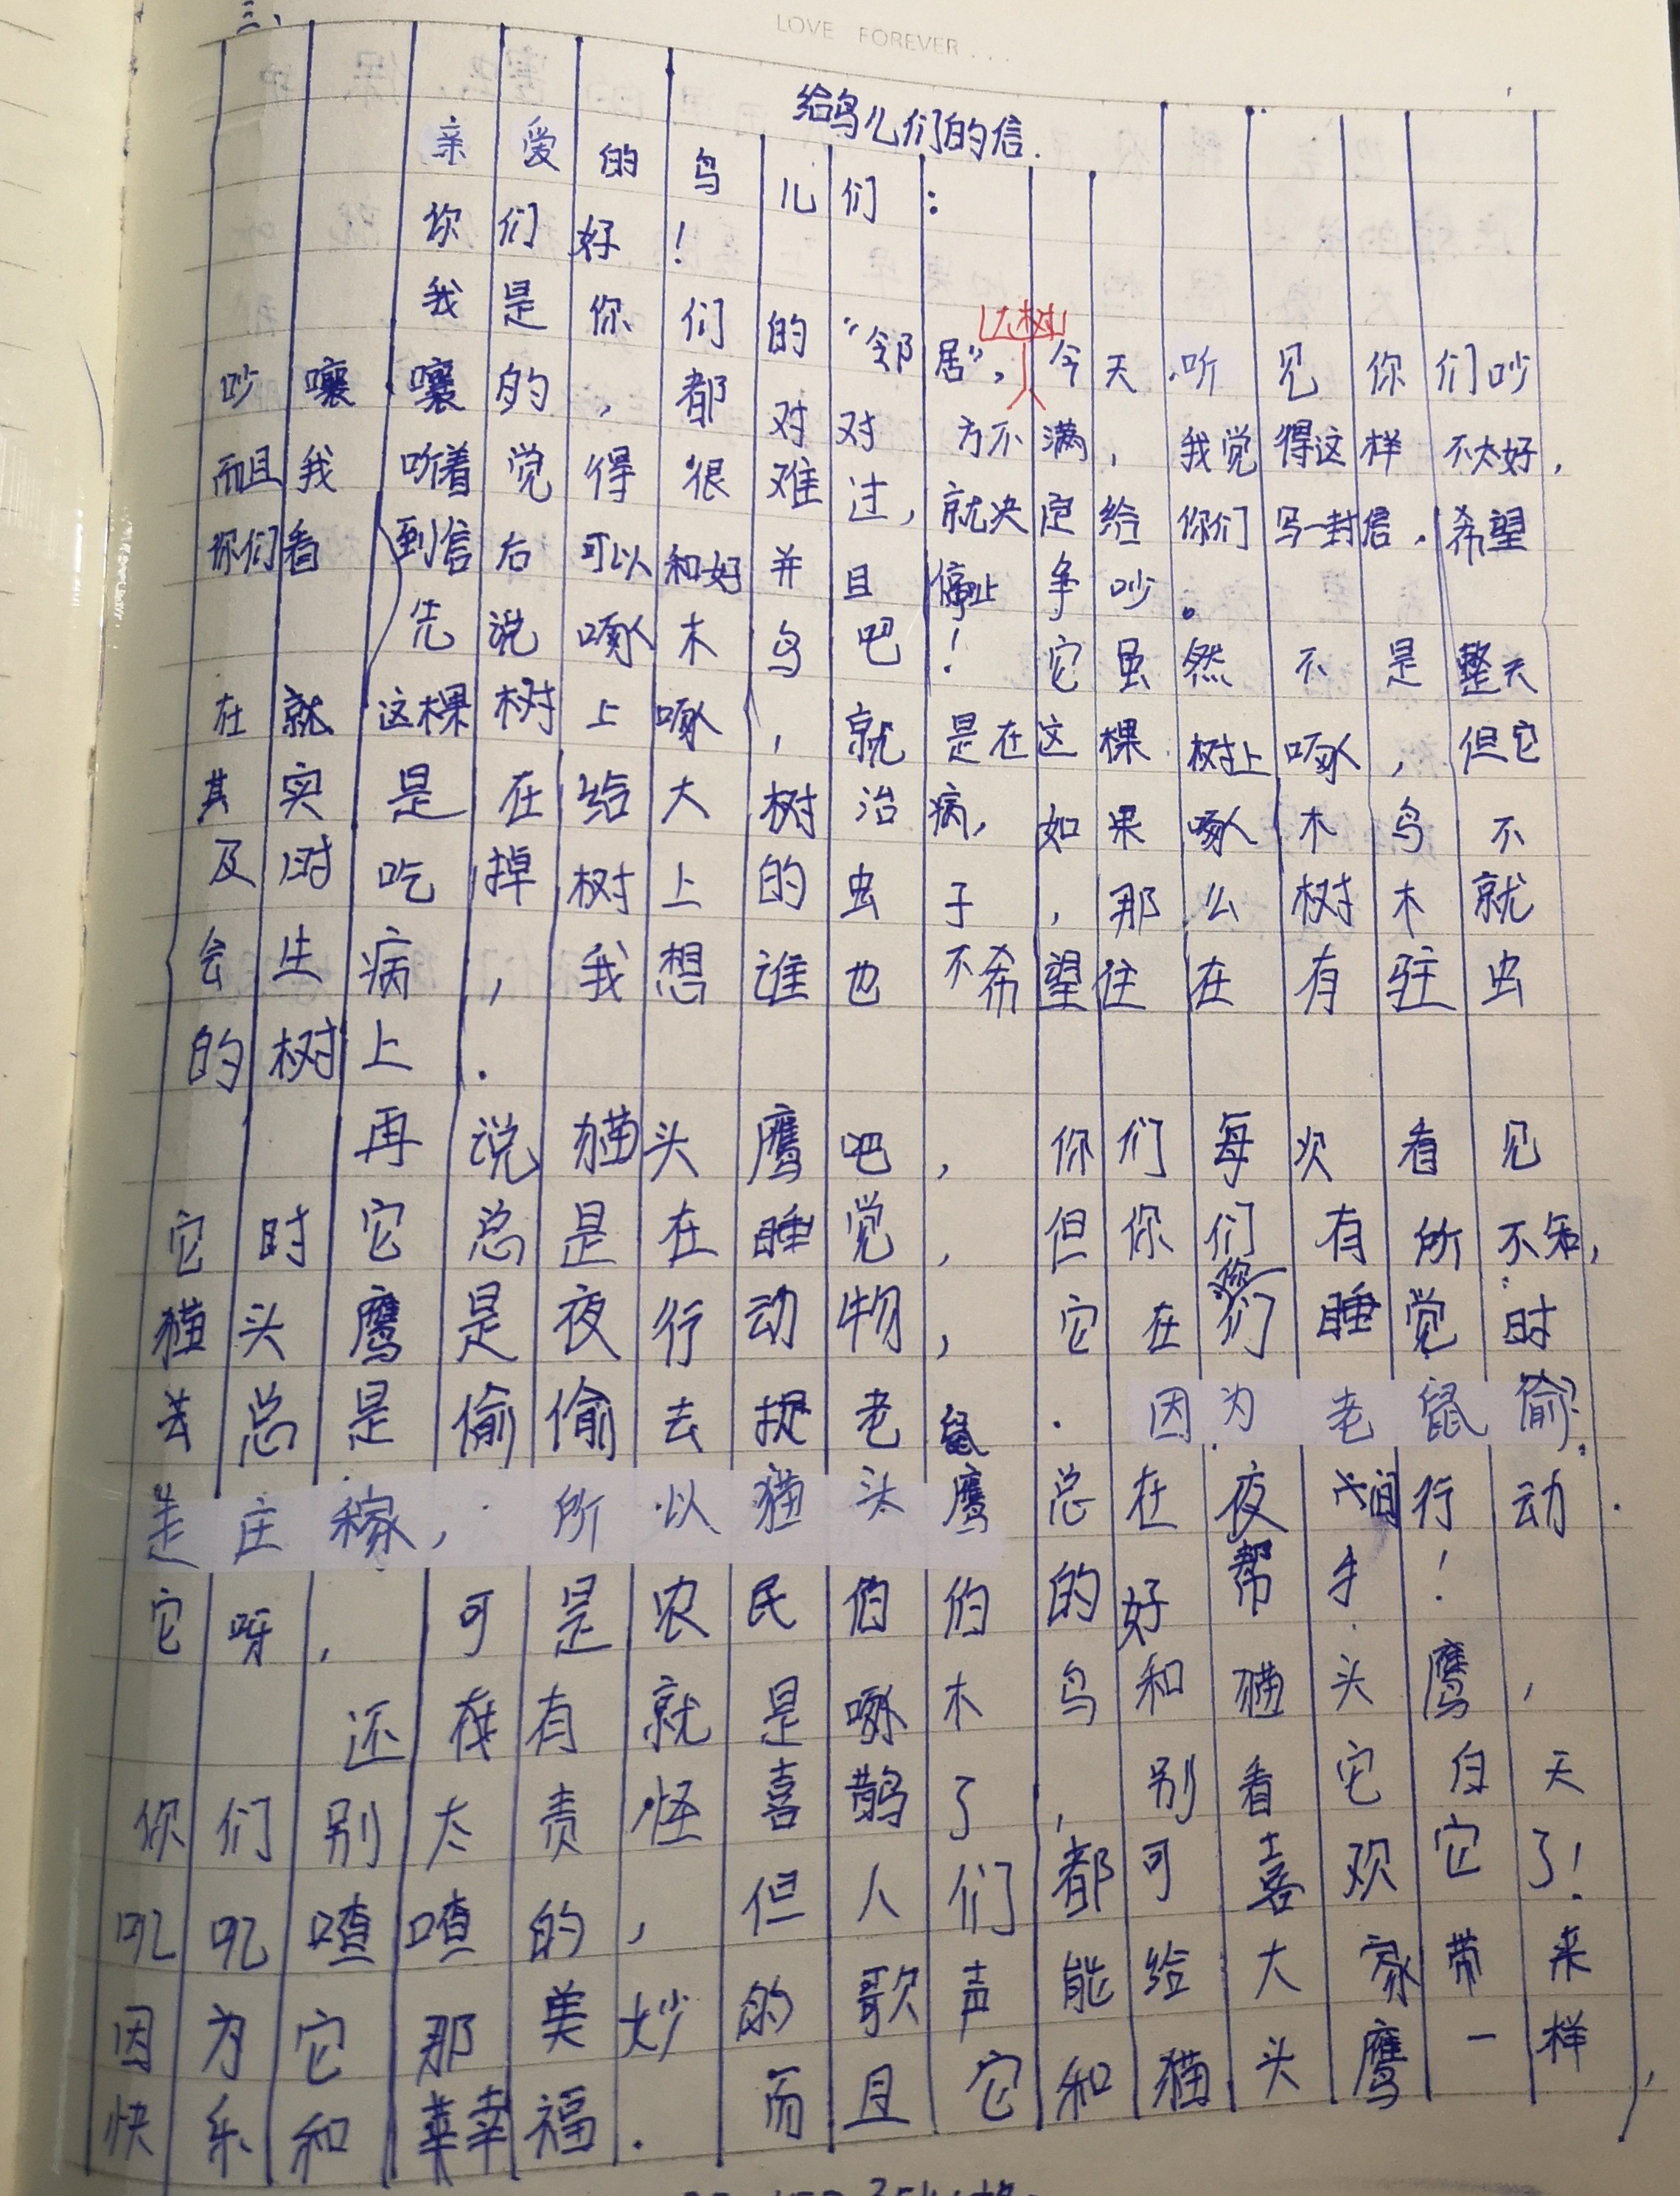 三、
LOVE FOREVER...
给鸟儿们的信.
亲爱的鸟儿们：
你们好！
我是你们的“邻居”，今天听见你们吵
吵嚷嚷的，都对对方不满，我觉得这样不太好，
而且我听着觉得很难过，就决定给你们写一封信，希望
你们看到信后可以和好并且停止争吵。
先说啄木鸟吧！它虽然不是整天
在就这棵树上啄，就是在这棵树上啄，但它
其实是在给大树治病，如果啄木鸟不
及时吃掉树上的虫子，那么树木就
会生病，我想谁也不希望住在有驻虫
的树上.
再说猫头鹰吧，你们每次看见
它时它总是在睡觉，但你们有所不知，
猫头鹰是夜行动物，它在你们睡觉时
总是偷偷去捉老鼠.因为老鼠偷
庄稼，所以猫头鹰总在夜间行动.
它呀，可是农民伯伯的好帮手！
还有就是啄木鸟和猫头鹰，
你们别太责怪喜鹊了，别看它白天
叽叽喳喳的，但人们都可喜欢它了！
因为它那美妙的歌声能给大家带来
快乐和幸福.而且它和猫头鹰一样，